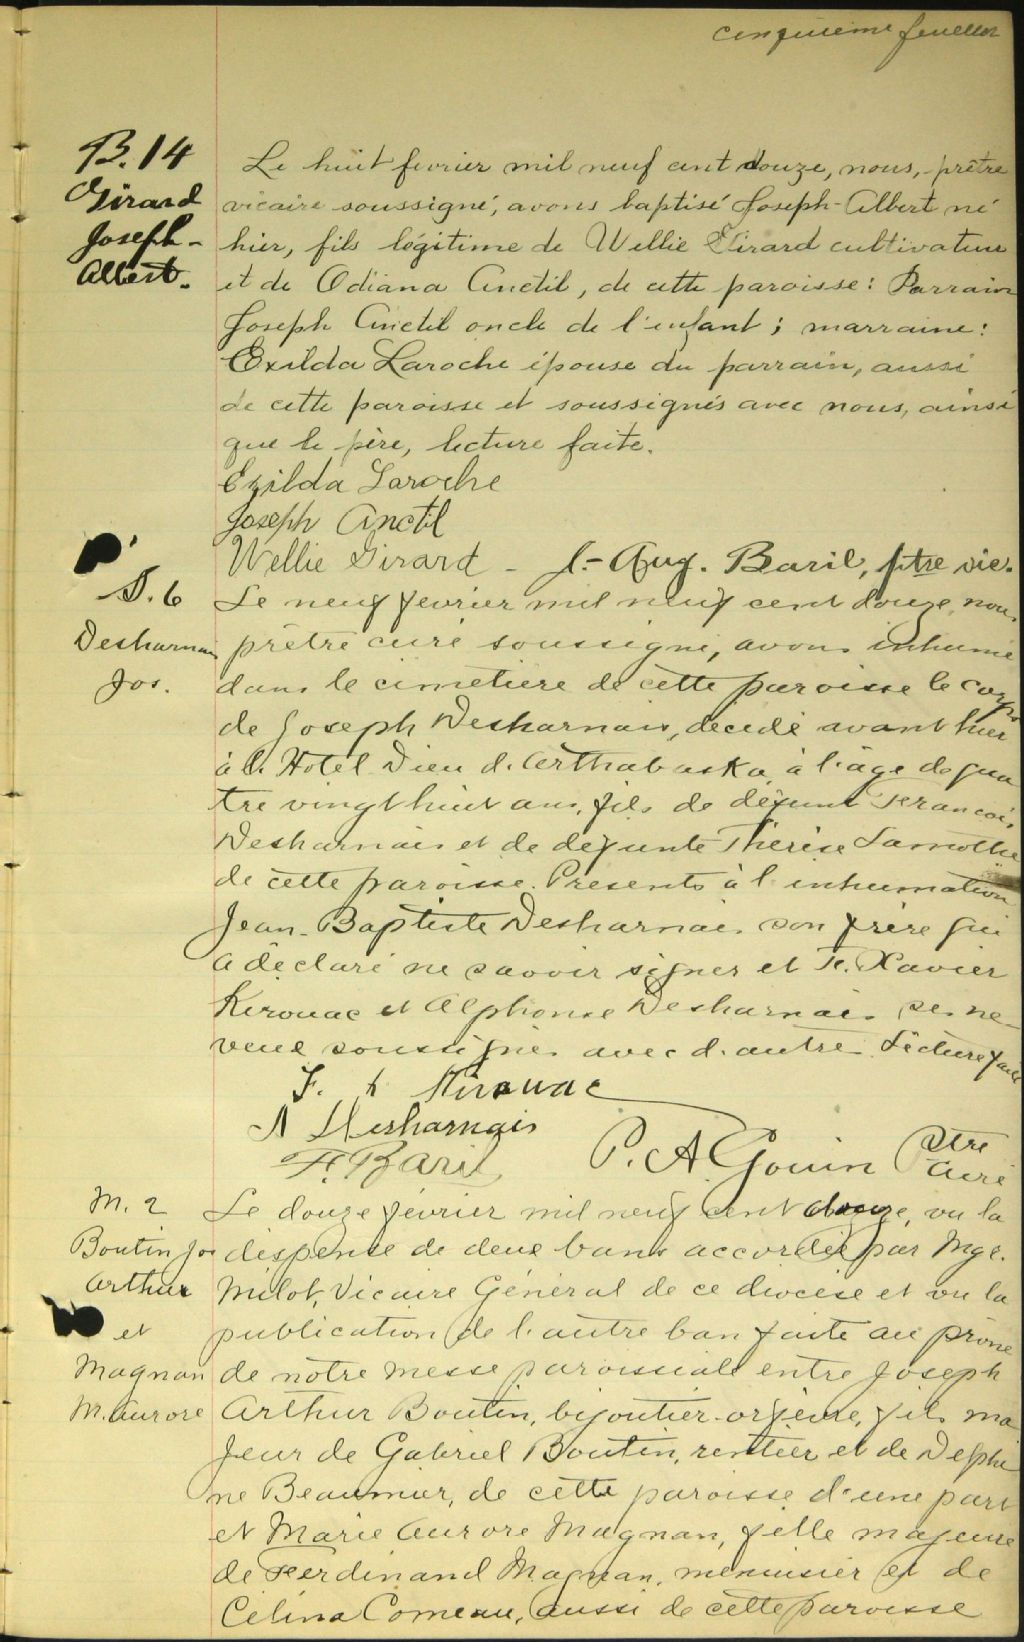 cinquième feuillet
B. 14
Girard
Joseph-
Albert.
Le huit fevrier mil neuf cent douze, nous, prêtre
vicaire soussigné, avons baptisé Joseph-Albert né
hier, fils légitime de Wellie Girard cultivateur
et de Odiana Anctil, de cette paroisse: Parrain
Joseph Anctil oncle de l'enfant; marraine:
Exilda Laroche épouse du parrain, aussi
de cette paroisse et soussignés avec nous, ainsi
que le père, lecture faite.
Exilda Laroche
Joseph Anctil
Wellie Girard - J.-Aug. Baril, ptre vic.
S. 6
Desharnais
Jos.
Le neuf fevrier mil neuf cent douze, nous
prêtre curé soussigné, avons inhumé
dans le cimetière de cette paroisse le corps
de Joseph Desharnais, décédé avant hier
à l'Hotel Dieu d'Arthabaska, à l'âge de qua
tre vingt huit ans, fils de défunt François
Desharnais et de défunte Thérèse Lamothe
de cette paroisse. Présents à l'inhumation
Jean-Baptiste Desharnais son frère qui
a déclaré ne savoir signer et F. Xavier
Kirouac et Alphonse Desharnais ses ne-
veux soussignés avec d'autres. Lecture faite
F. X Kirouac
A Desharnais
F. Baril P. A. Gouin Ptre
Curé
M. 2
Boutin Jos
Arthur
et
Magnan
M. Aurore
Le douze février mil neuf cent douze, vu la
dispense de deux bans accordée par Mgr.
Milot, Vicaire Général de ce diocèse et vu la
publication de l'autre ban faite au prône
de notre messe paroissiale entre Joseph
Arthur Boutin, bijoutier-orfèvre, fils ma
jeur de Gabriel Boutin, rentier et de Delphi
ne Beaumier, de cette paroisse d'une part
et Marie Aurore Magnan, fille majeure
de Ferdinand Magnan, menuisier et de
Célina Comeau, aussi de cette paroisse